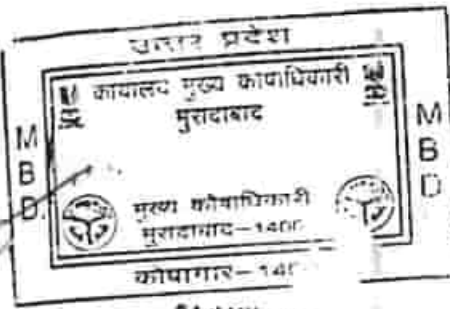 उत्तर प्रदेश
कार्यालय मुख्य कोषाधिकारी
मुरादाबाद
MBD
MBD
मुख्य कोषाधिकारी
मुरादाबाद-1400
कोषागार-14